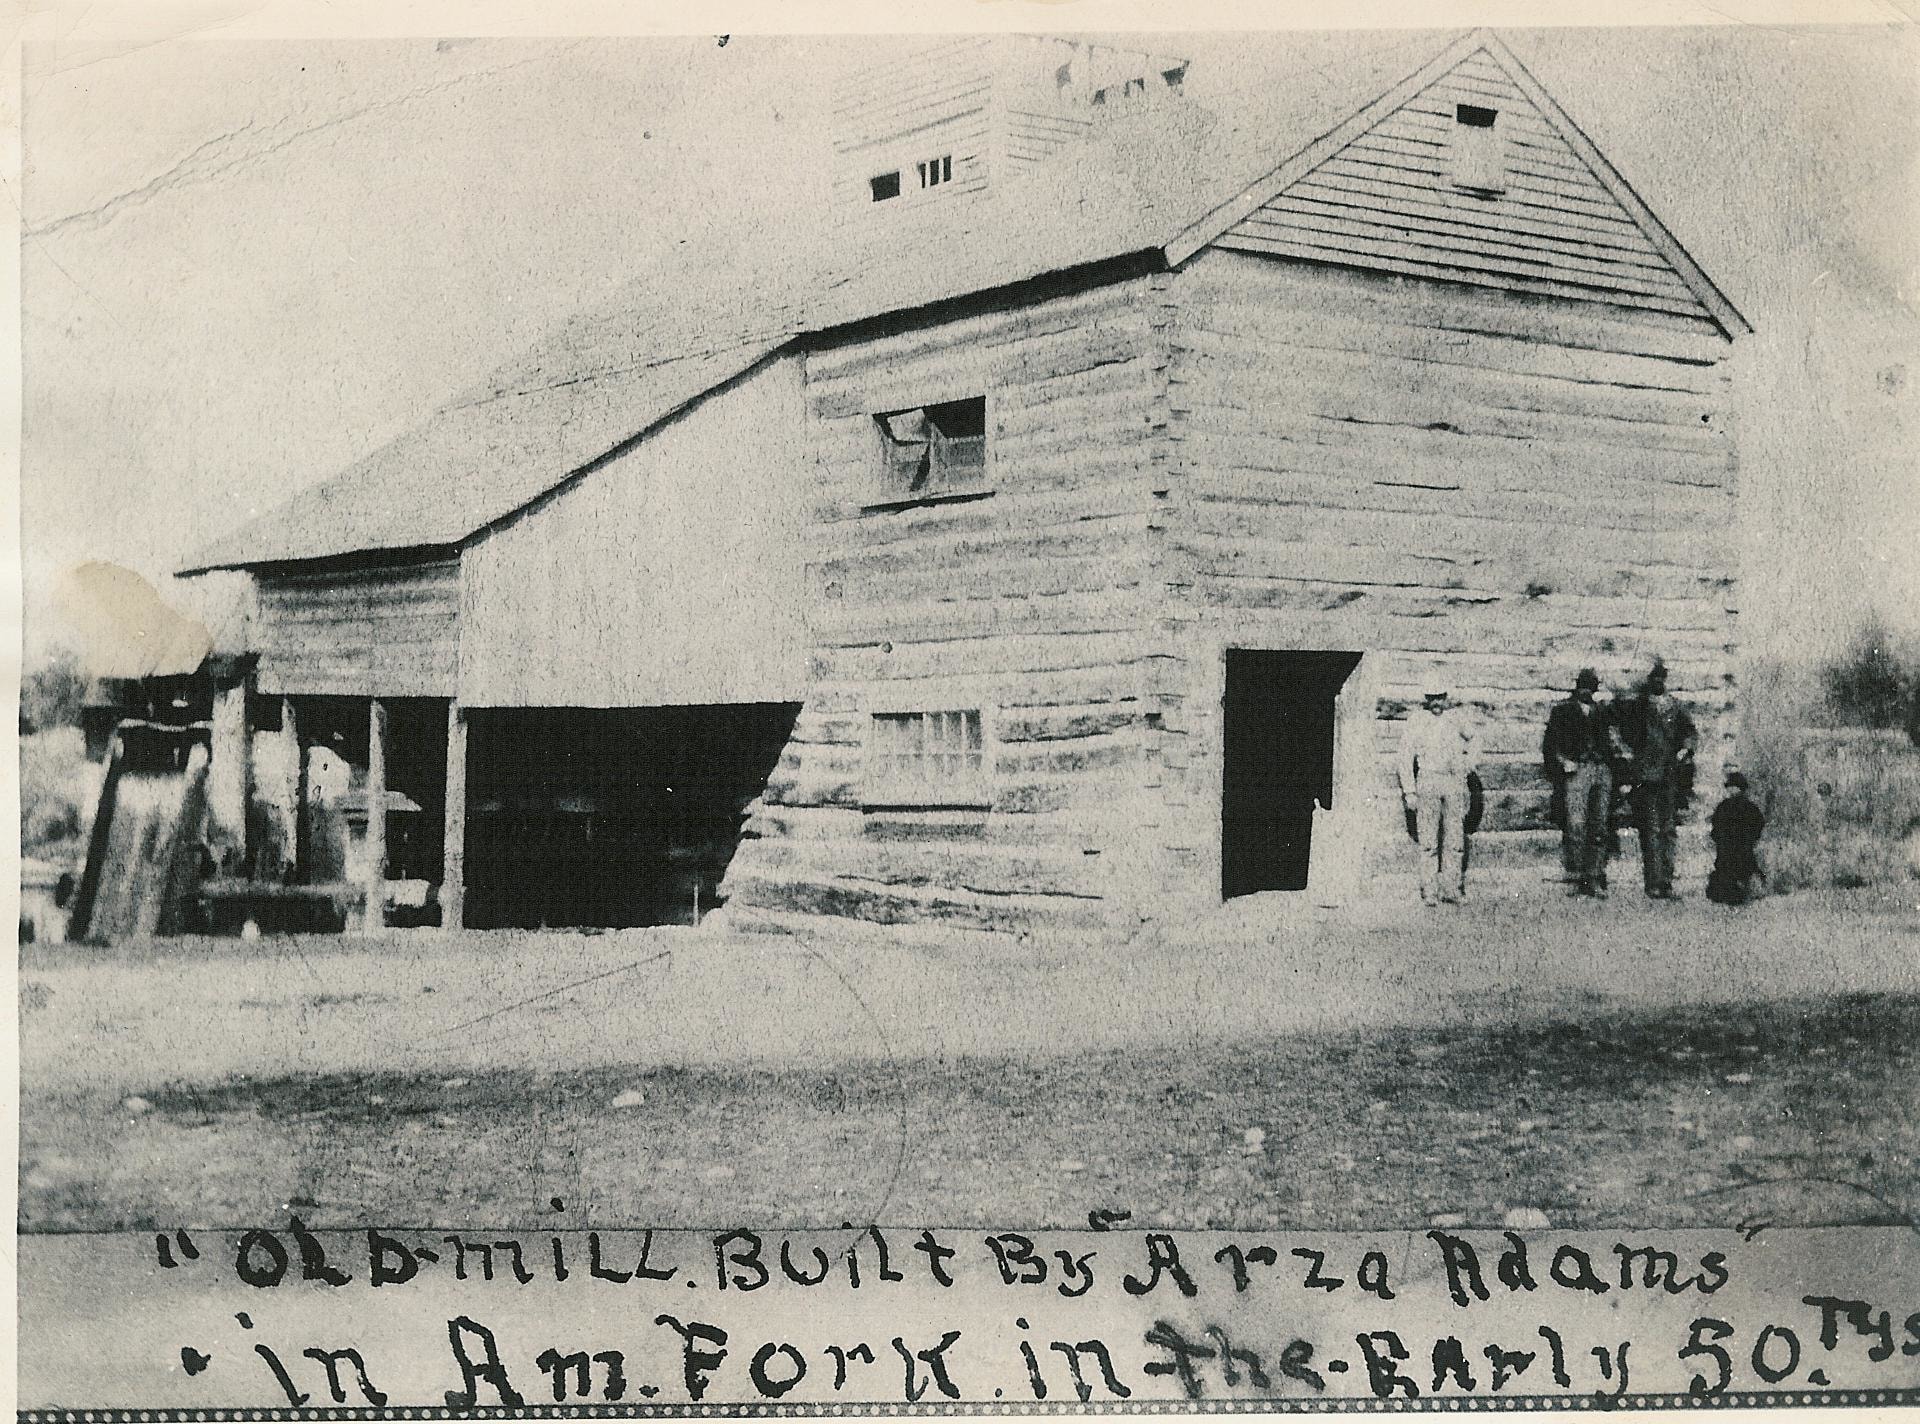 "Old-mill. Built By "Arza Adams"
"in Am. Fork. in-the-Early 50.Tys